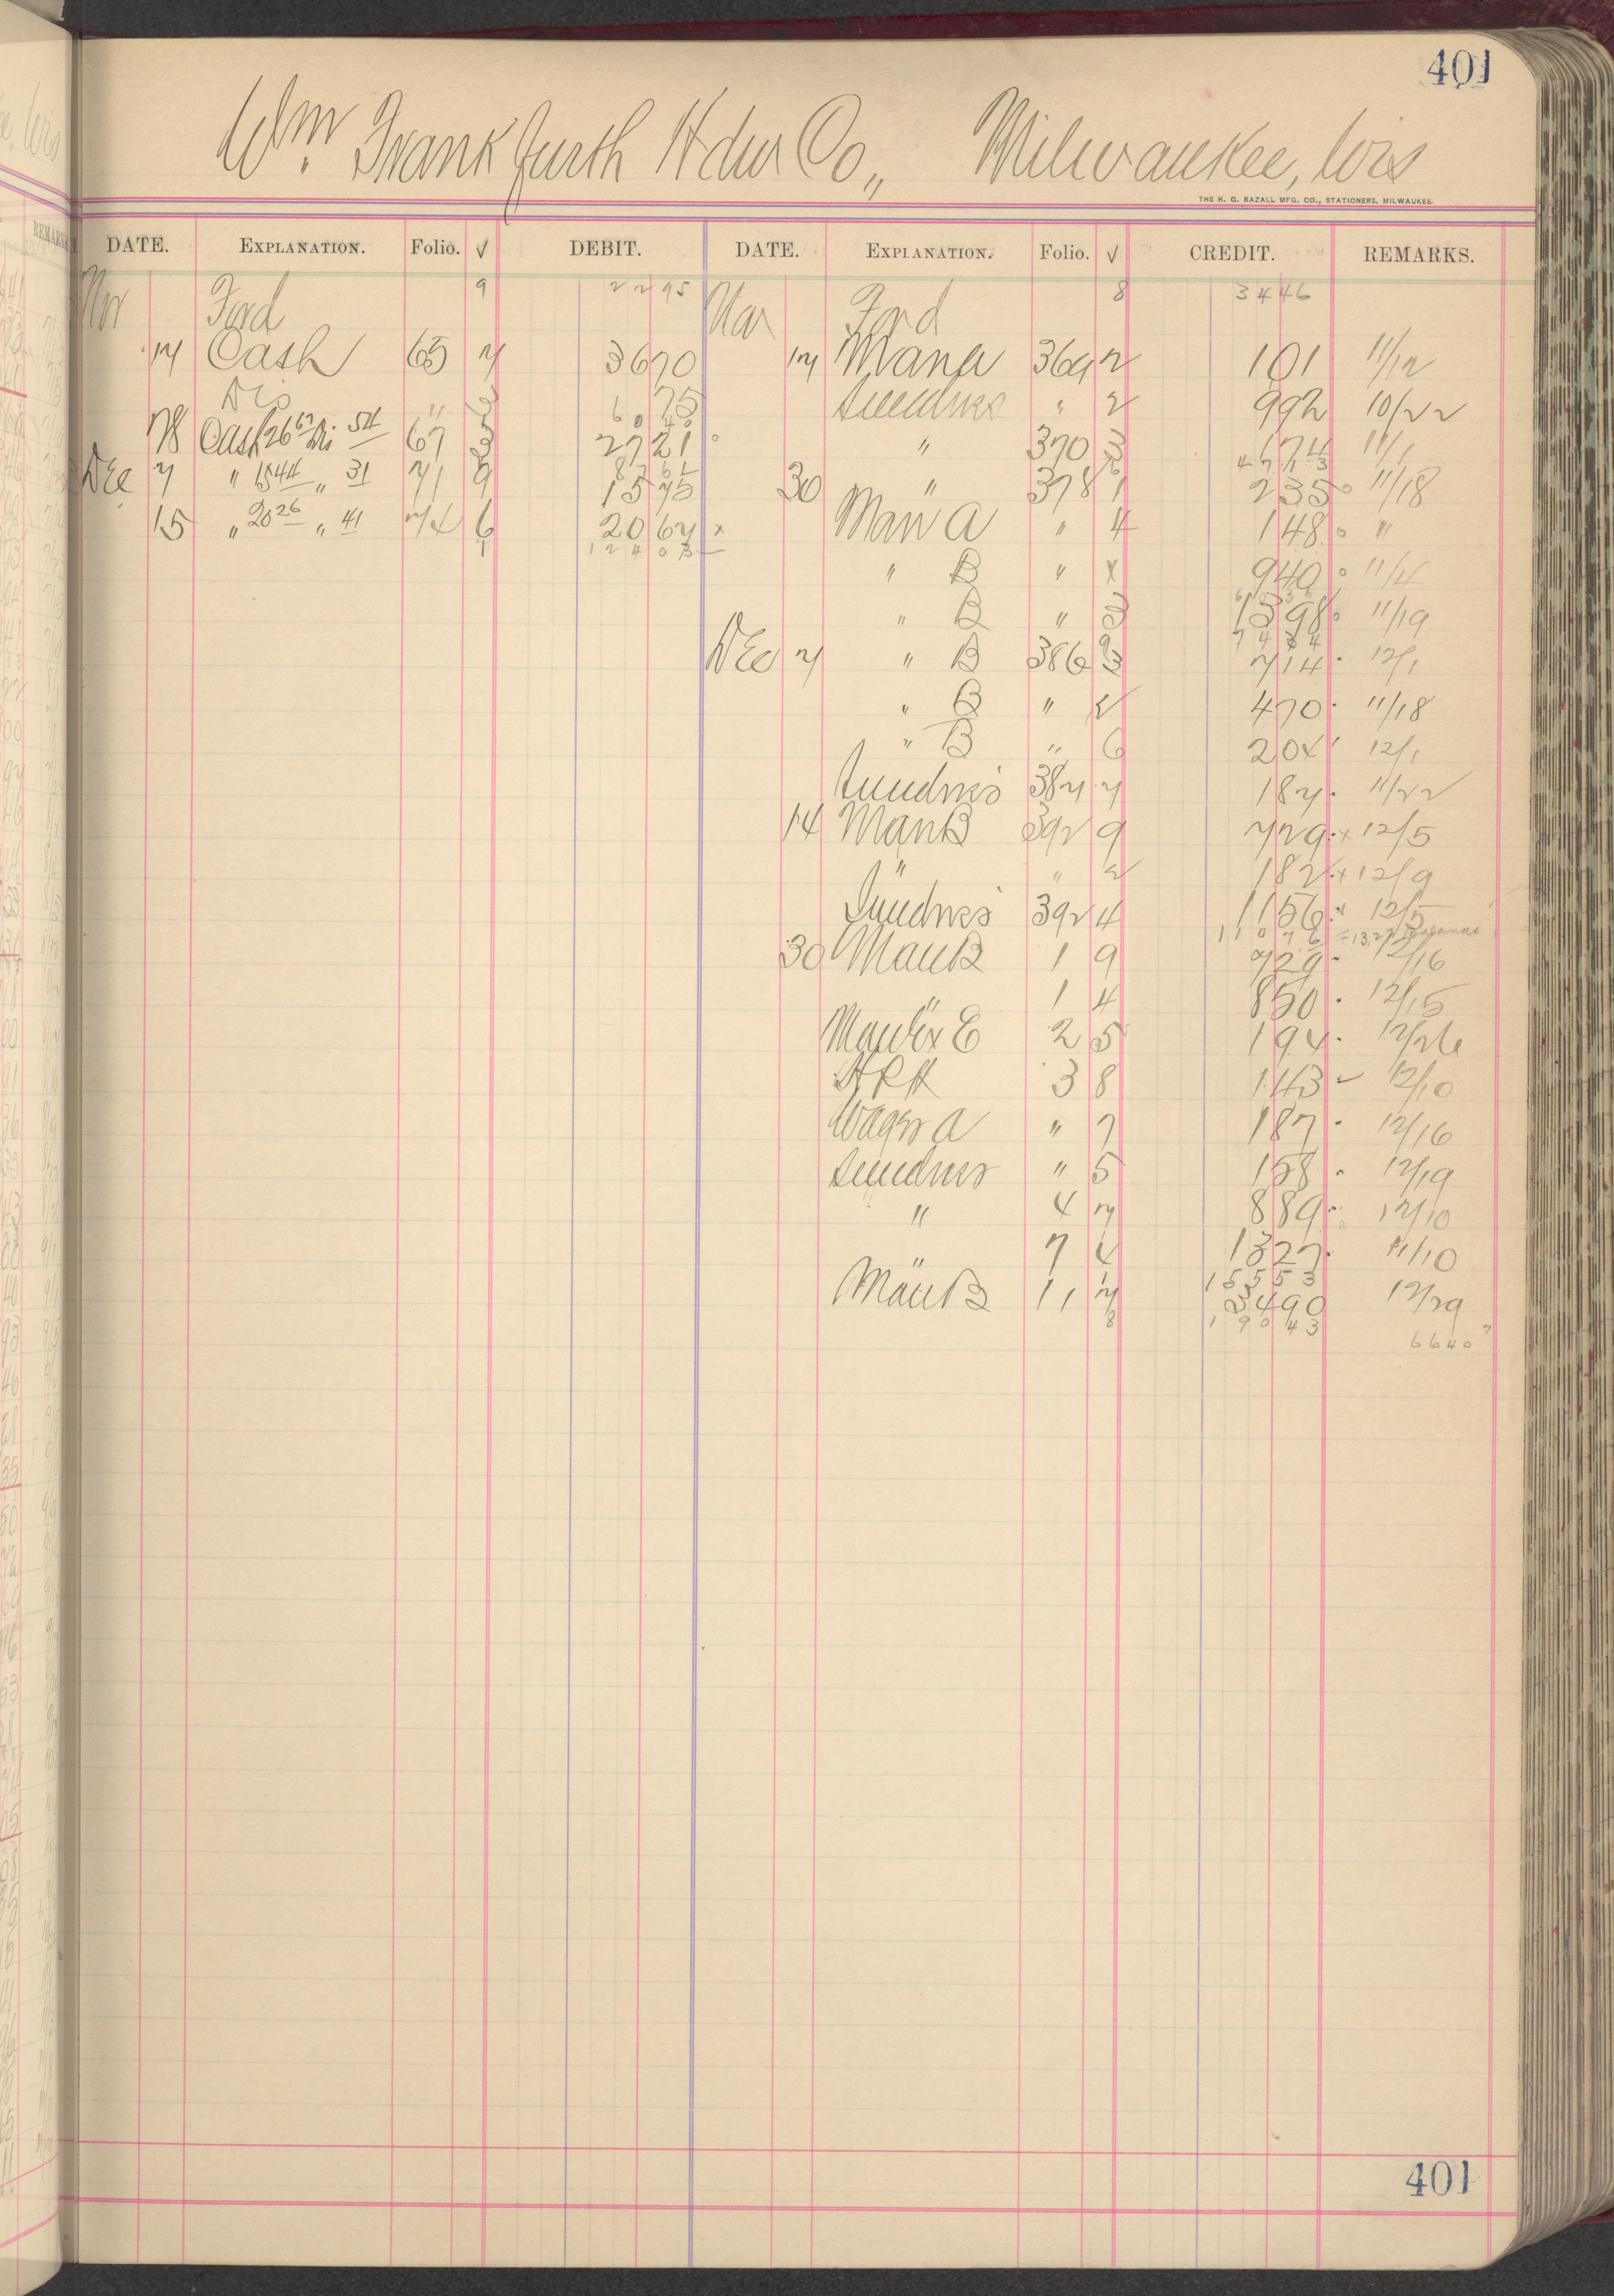 401
Wm. Frankfurth Hdw Co., Milwaukee, Wis
THE H. G. RAZALL MFG. CO., STATIONERS, MILWAUKEE.
DATE. EXPLANATION. Folio. √ DEBIT. DATE. EXPLANATION. Folio. √ CREDIT. REMARKS.
Nov Ford 9 22 95 Nov Ford 8 34 46
17 Cash 65 7 36 70 17 Man a 369 2 1 01 11/12
Dis " 75 Sundries " 2 9 92 10/22
60 40
28 Cash 26 67 Dis 54 67 3 27 21 " 370 3 1 74 11/1
87 61 47 13
Dec 7 " 15 44 " 31 71 9 15 75 30 " 378 1 2 35 11/18
15 " 20 26 " 41 74 6 20 67 Man a " 4 1 48 "
1 124 03
" B " 9 40 11/4
" B " 3 13 98 11/19
74 34
Dec 7 " B 386 3 7 14 12/1
" B " 4 70 11/18
" B " 6 2 04 12/1
Sundries 387 7 1 87 11/22
14 Man B 392 9 7 29 12/5
" " 2 1 82 12/9
Sundries 392 4 11 56 12/5
110 76
30 Man B 1 9 7 29 12/16
" 1 4 8 50 12/15
E 2 5 1 94 12/26
3 8 1 43 12/10
Wagon a " 7 1 87 12/16
Sundries " 5 1 58 12/19
" 4 7 8 89 12/10
" 7 4 13 27 11/10
155 53
Man B 11 7 34 90 12/29
8 190 43
66 40
401